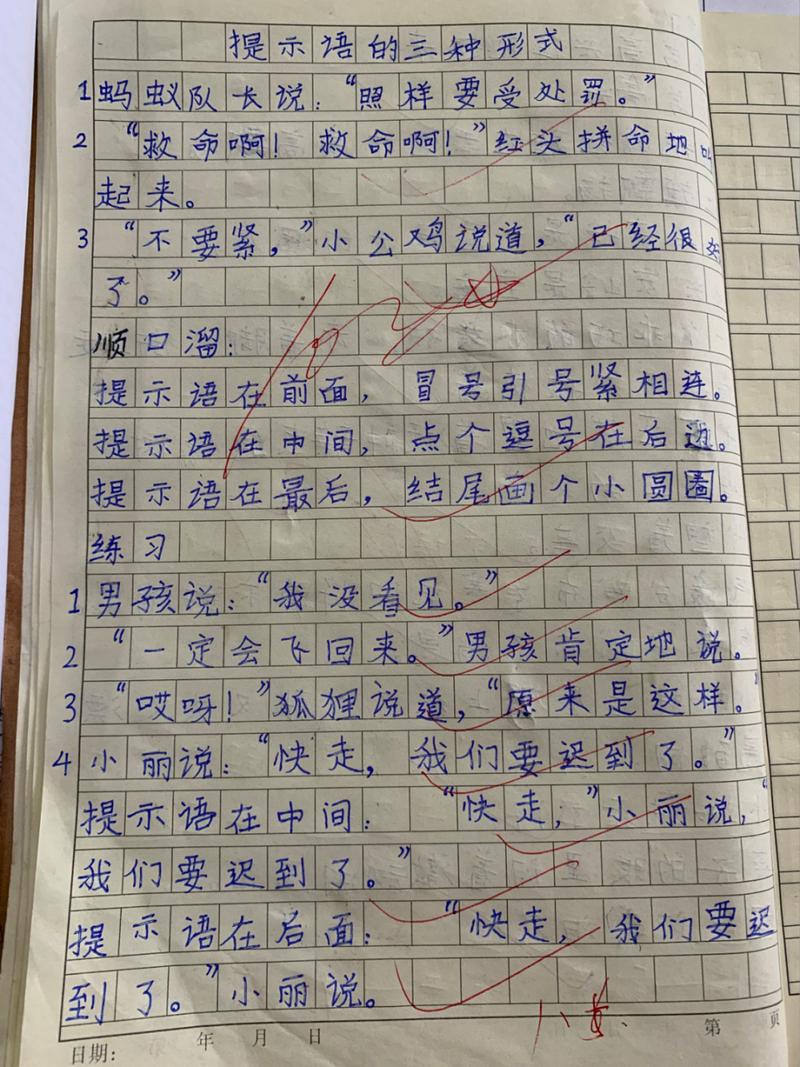 提示语的三种形式
1 蚂蚁队长说：“照样要受处罚。”
2 “救命啊！救命啊！”红头拼命地叫
起来。
3 “不要紧，”小公鸡说道，“已经很好
了。”
顺口溜：
提示语在前面，冒号引号紧相连。
提示语在中间，点个逗号在后边。
提示语在最后，结尾画个小圆圈。
练习
1 男孩说：“我没看见。”
2 “一定会飞回来。”男孩肯定地说。
3 “哎呀！”狐狸说道，“原来是这样。”
4 小丽说：“快走，我们要迟到了。”
提示语在中间：“快走，”小丽说，“
我们要迟到了。”
提示语在后面：“快走，我们要迟
到了。”小丽说。
日期： 年 月 日 第 页